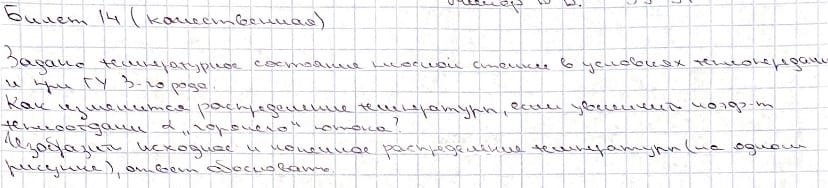 Билет 14 (качественная)
Задано температурное состояние плоской стенки в условиях теплопередачи
и при ГУ 3-го рода.
Как изменится распределение температуры, если увеличить коэф-т
теплоотдачи α "горячего" потока?
Изобразить исходное и конечное распределение температуры (на одном
рисунке), ответ обосновать.